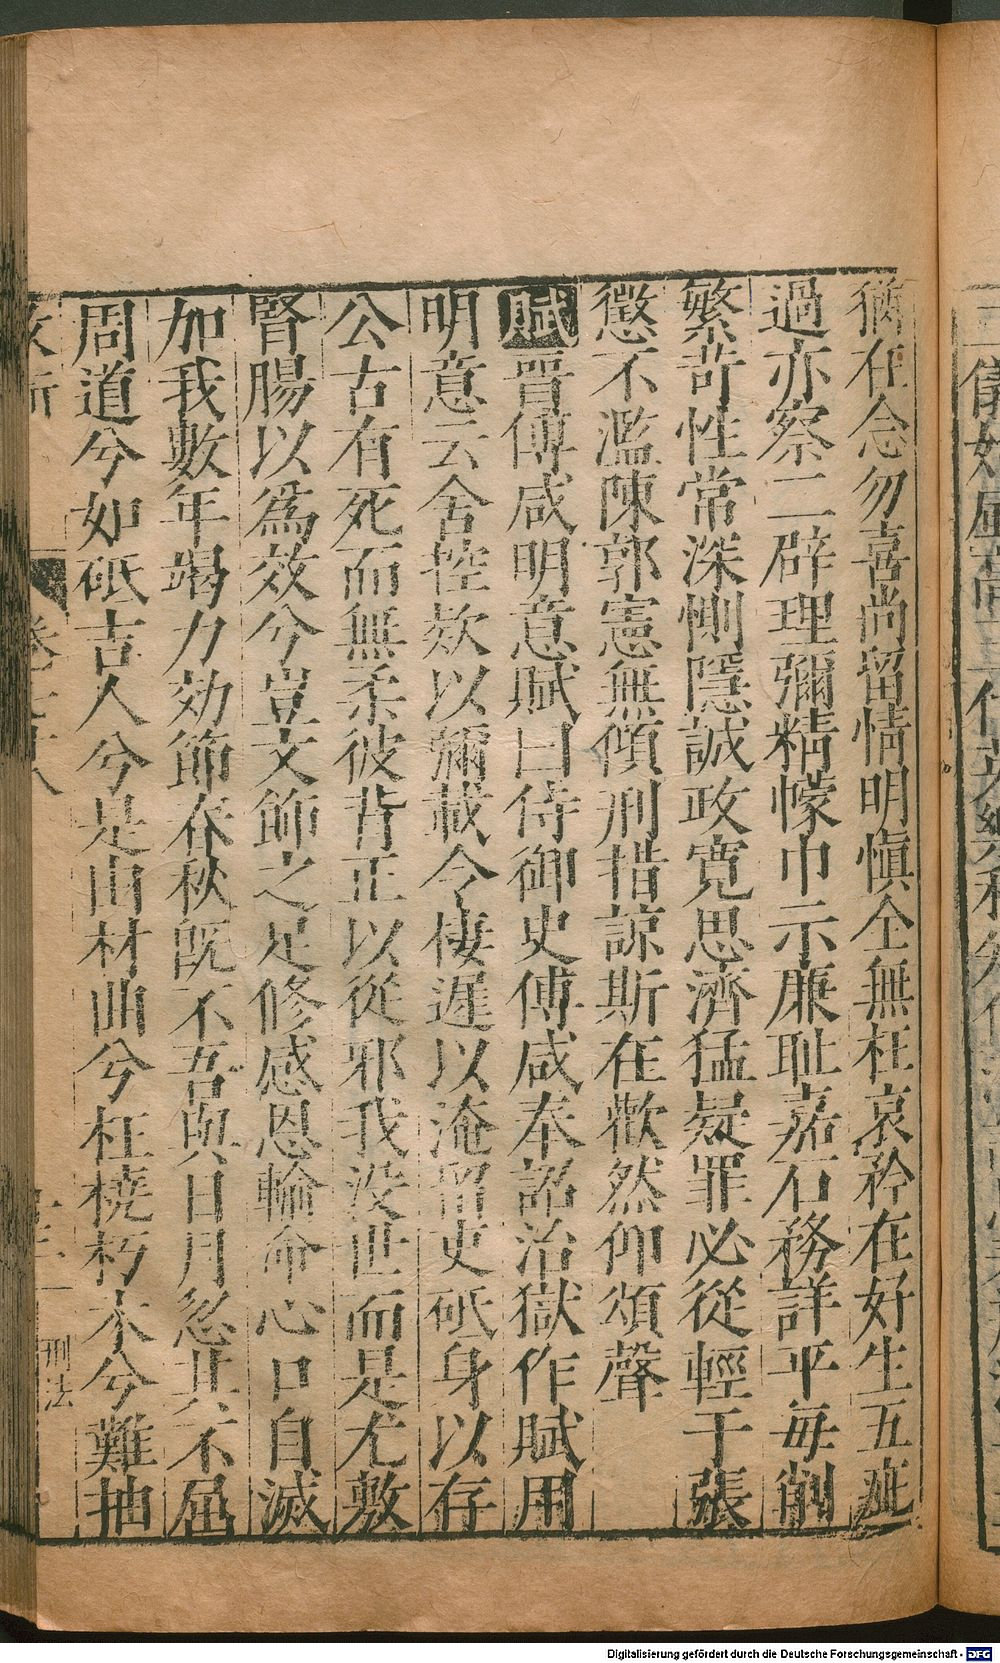 猶在念勿喜尚留情明愼全無枉哀矜在好生五疵
過亦察二辟理彌精幪巾示廉耻嘉石務詳平每削
繁苛性常深惻隱誠政寬思濟猛疑罪必從輕于張
懲不濫陳郭憲無傾刑措諒斯在歡然仰頌聲
賦晋傅咸明意賦曰侍御史傅咸奉詔治獄作賦用
明意云舍控欸以彌載令棲遲以淹留吏砥身以存
公古有死而無柔彼背正以從邪我没世而是尤敷
腎腸以爲效兮豈文飾之足修感恩輸命心口自滅
加我數年竭力効節春秋旣不吾與日月忽其不屈
周道兮如砥吉人兮是由材曲兮枉橈朽木兮難抽
刑法
Digitalisierung gefördert durch die Deutsche Forschungsgemeinschaft - DFG